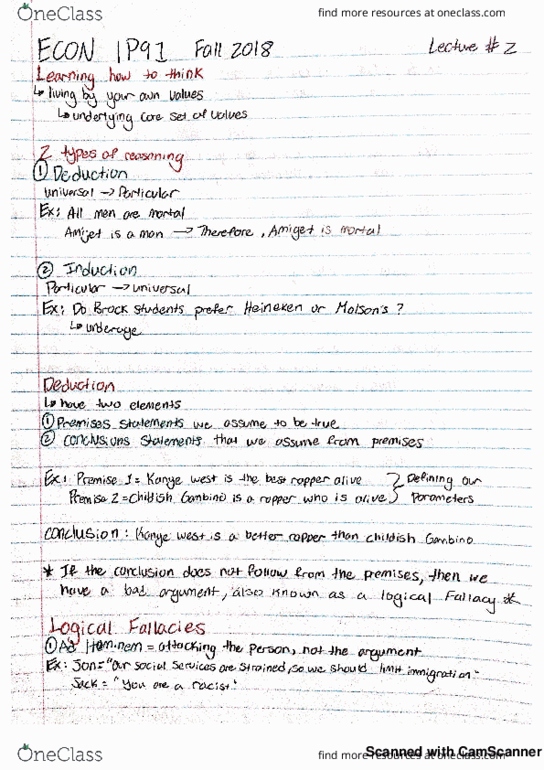 OneClass
find more resources at oneclass.com
ECON 1P91 Fall 2018
Lecture #2
Learning how to think
↳ living by your own values
↳ underlying core set of values
2 types of reasoning
① Deduction
universal → Particular
Ex: All men are mortal
Amijet is a man → Therefore, Amiget is mortal
② Induction
Particular → universal
Ex: Do Brock students prefer Heineken or Molson's?
↳ underage
Deduction
↳ have two elements
① Premises statements we assume to be true
② conclusions statements that we assume from premises
Ex: Premise 1 = Kanye west is the best rapper alive } Defining our
Premise 2 = Childish Gambino is a rapper who is alive } Parameters
conclusion: Kanye west is a better rapper than childish Gambino
* If the conclusion does not follow from the premises, then we
have a bad argument, also known as a logical Fallacy *
Logical Fallacies
① Ad Hominem = attacking the person, not the argument
Ex: Jon = "Our social services are strained, so we should limit immigration."
Jack = "You are a racist."
OneClass
find more resources at oneclass.com
Scanned with CamScanner